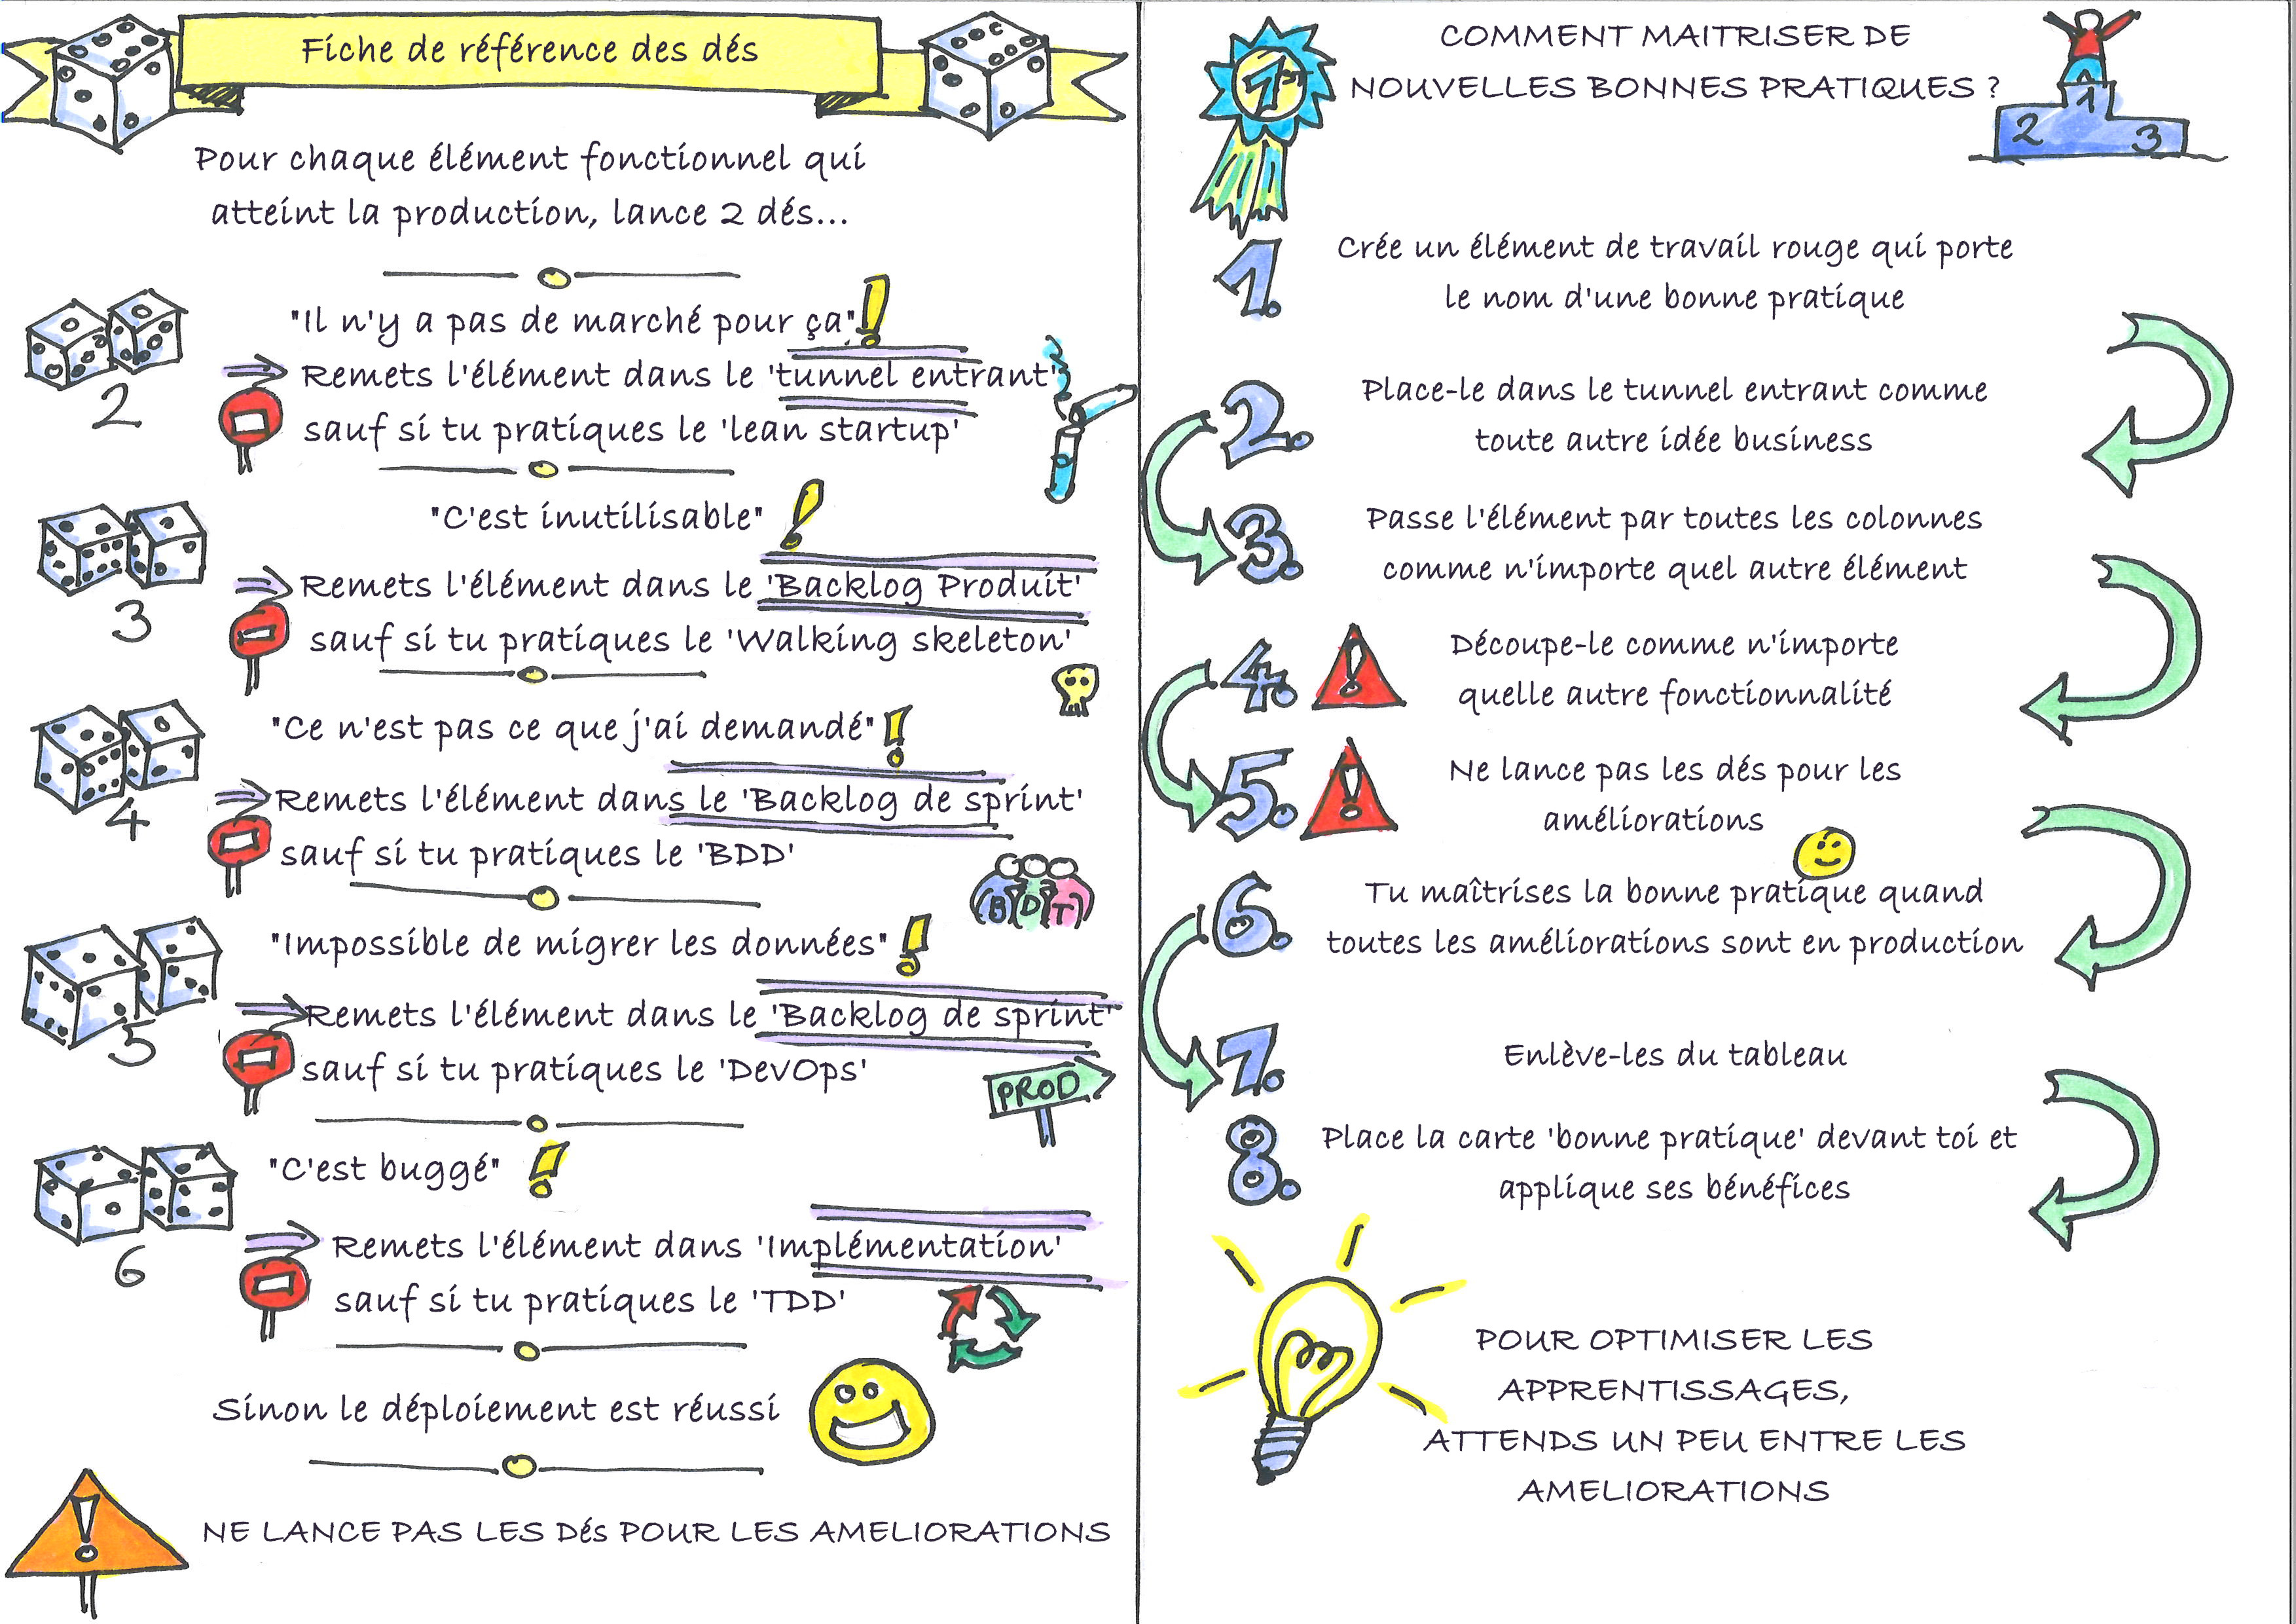 Fiche de référence des dés
Pour chaque élément fonctionnel qui
atteint la production, lance 2 dés...
2
"Il n'y a pas de marché pour ça" !
Remets l'élément dans le 'tunnel entrant'
sauf si tu pratiques le 'lean startup'
3
"C'est inutilisable" !
Remets l'élément dans le 'Backlog Produit'
sauf si tu pratiques le 'Walking skeleton'
4
"Ce n'est pas ce que j'ai demandé" !
Remets l'élément dans le 'Backlog de sprint'
sauf si tu pratiques le 'BDD'
B D T
5
"Impossible de migrer les données" !
Remets l'élément dans le 'Backlog de sprint'
sauf si tu pratiques le 'DevOps'
PROD
6
"C'est buggé" !
Remets l'élément dans 'Implémentation'
sauf si tu pratiques le 'TDD'
Sinon le déploiement est réussi
!
NE LANCE PAS LES Dés POUR LES AMELIORATIONS
1er
COMMENT MAITRISER DE
NOUVELLES BONNES PRATIQUES ?
1
2 3
1. Crée un élément de travail rouge qui porte
le nom d'une bonne pratique
2. Place-le dans le tunnel entrant comme
toute autre idée business
3. Passe l'élément par toutes les colonnes
comme n'importe quel autre élément
4. ! Découpe-le comme n'importe
quelle autre fonctionnalité
5. ! Ne lance pas les dés pour les
améliorations
6. Tu maîtrises la bonne pratique quand
toutes les améliorations sont en production
7. Enlève-les du tableau
8. Place la carte 'bonne pratique' devant toi et
applique ses bénéfices
POUR OPTIMISER LES
APPRENTISSAGES,
ATTENDS UN PEU ENTRE LES
AMELIORATIONS